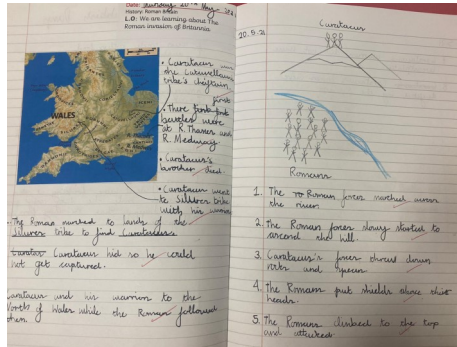 Date: Thursday 20th May 2021
History: Roman Britain
L.O: We are learning about The
Roman invasion of Britannia.
WALES
• Caratacus was
the Catuvellauni
tribe's chieftain.
• There first
battles were
at R. Thames and
R. Medway.
• Caratacus's
brother died.
• Caratacus went
to Silures tribe
with his
. The Roman marched to lands of the
Silures tribe to find Caratacus.
Caratacus hid so he could
not get captured.
Caratacus and his warriors to the
North of Wales while the Roman followed
them.
20.5.21
Caratacus
Romans
1. The Roman forces marched across
the river.
2. The Roman forces slowly started to
ascend the hill.
3. Caratacus's forces throwed down
rocks and spears.
4. The Romans put shields above their
heads.
5. The Romans climbed to the top
and attacked.